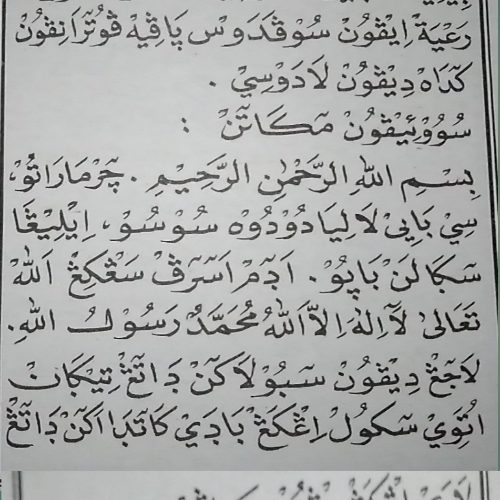 رَعْيَةْ اِيڤُونْ سُوڤَدَوْسْ بَاڤِيْهْ ڤُوتْرَانِڤُونْ
كَدَاهْ دِيڤُونْ لَادَوْسِيْ .
سُوْوُئِيڤُونْ مَكَاتَنْ :
بِسْمِ اللهِ الرَّحْمٰنِ الرَّحِيْمِ . چَرْمَارَاتُوْ،
سِيْ بَايِيْ لَالِيَادُوْدُوْهْ سُوْسُوْ، اِيْلِيْڠَا
سَكَالَنْ بَاپُوْ . اَدَمْ اَسْرَڤْ سَڠْكِڠْ اَللهْ
تَعَالٰى لَآاِلٰهَ اِلَّااللهُ مُحَمَّدٌ رَسُوْلُ اللهِ.
لَاجَڠْ دِيڤُونْ سَبُوْلَاكَنْ دَاتَڠْ تِيْكَانْ
اُتَوِيْ سَكُوْلْ اِڠْكَڠْ بَادَيْ كَاتَدَا اَكَنْ دَاتَڠْ